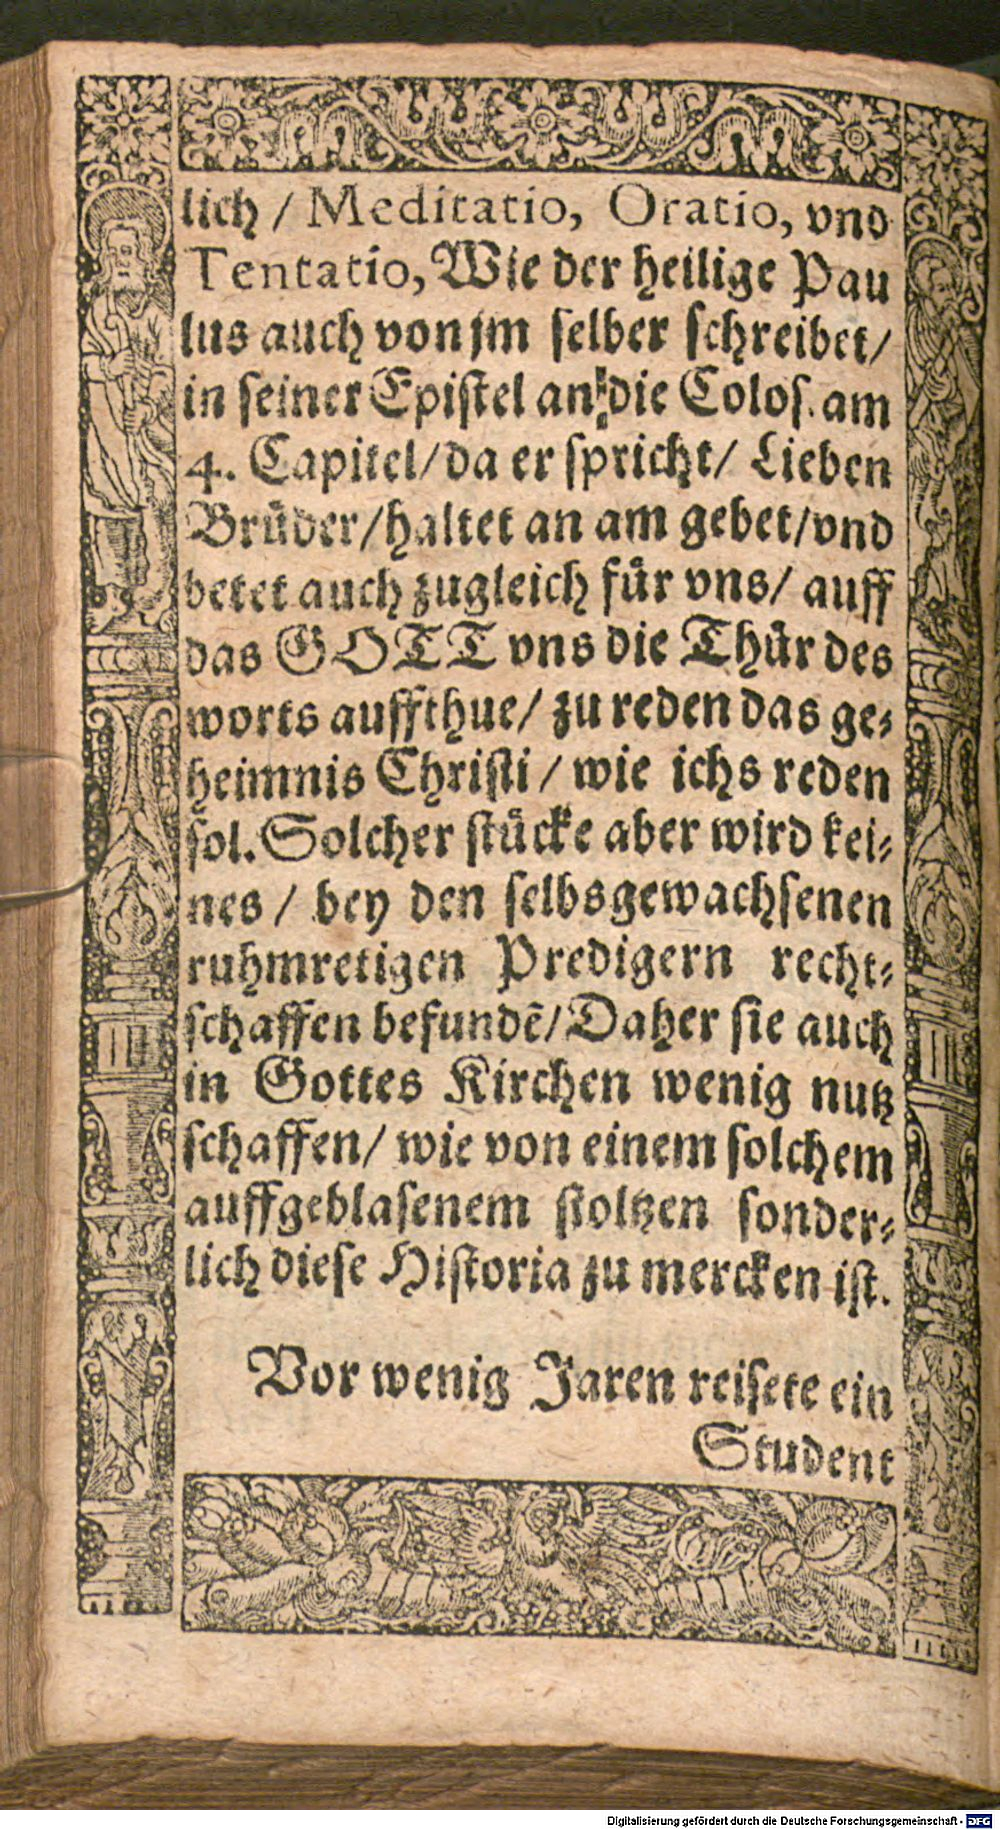 lich / Meditatio, Oratio, vnd
Tentatio, Wie der heilige Pau
lus auch von jm selber schreibet/
in seiner Epistel an die Colos. am
4. Capitel/ da er spricht/ Lieben
Brüder/ haltet an am gebet/ vnd
betet auch zugleich für vns/ auff
das GOTT vns die Thür des
worts auffthue/ zu reden das ge-
heimnis Christi / wie ichs reden
sol. Solcher stücke aber wird kei-
nes / bey den selbsgewachsenen
ruhmretigen Predigern recht-
schaffen befundē/ Daher sie auch
in Gottes Kirchen wenig nutz
schaffen/ wie von einem solchem
auffgeblasenem stoltzen sonder-
lich diese Historia zu mercken ist.
Vor wenig Jaren reisete ein
Student
Digitalisierung gefördert durch die Deutsche Forschungsgemeinschaft - DFG